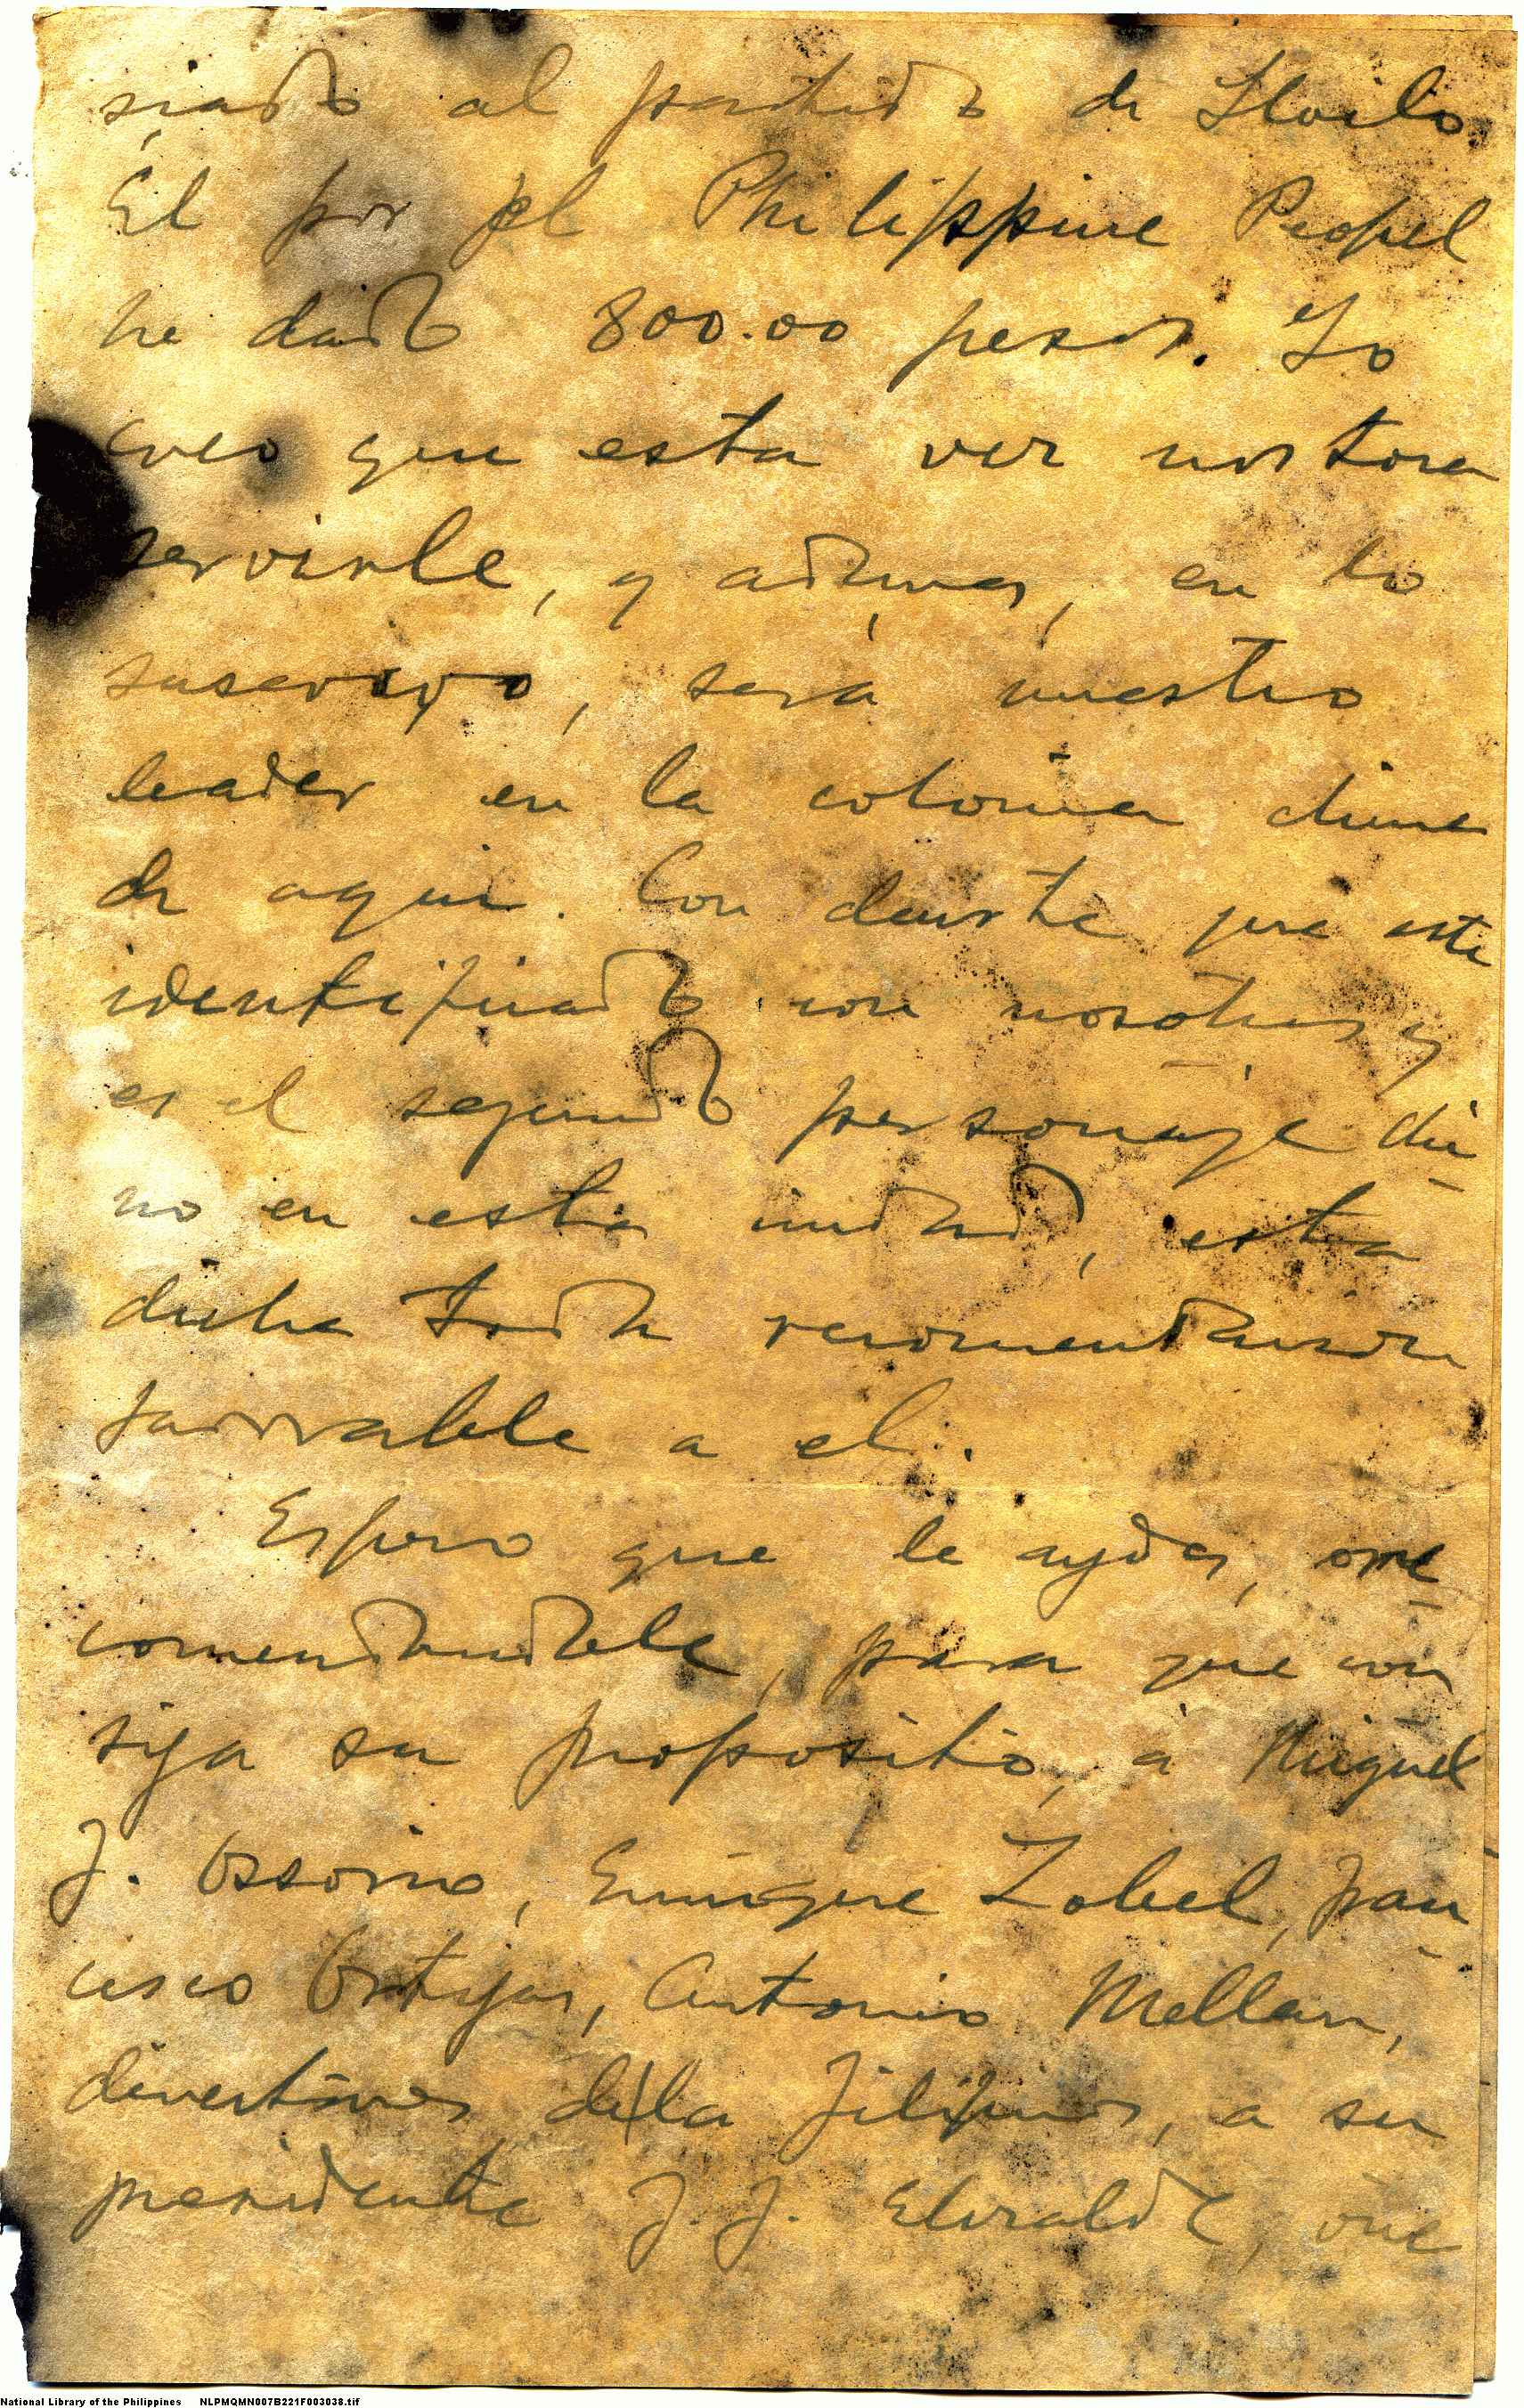 siado al partido de Iloilo.
El por el Philippine Peopel
he dado 800.00 pesos. Yo
creo que esta vez nos toca
servirle, y ademas, en lo
sucesivo, será nuestro
leader en la colonia china
de aqui. Con decirte que esta
identificado con nosotros y
es el segundo personaje chi-
no en esta ciudad, esta
dicha toda recomendacion
favorable a el.
Espero que le aydes,
comendandole, para que con
siga su proposito, á Miguel
J. Ossorio, Enrique Zobel, Fran-
cisco Ortigas, Antonio Mellan,
directores de la Filipinas, a su
presidente J. J. Elizalde,
National Library of the Philippines NLPMQMN007B221F003038.tif